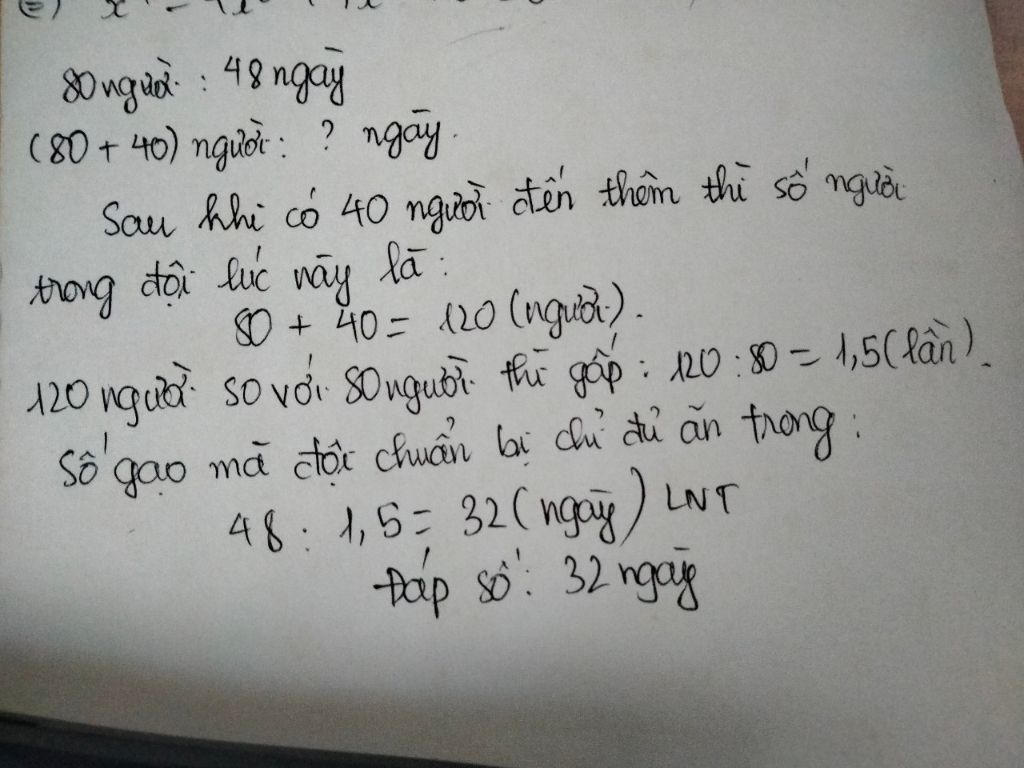 80 người : 48 ngày
(80 + 40) người : ? ngày.
Sau khi có 40 người đến thêm thì số người
trong đội lúc này là :
80 + 40 = 120 (người).
120 người so với 80 người thì gấp : 120 : 80 = 1,5 (lần).
Số gạo mà đội chuẩn bị chỉ đủ ăn trong :
48 : 1,5 = 32 (ngày) LNT
Đáp số : 32 ngày